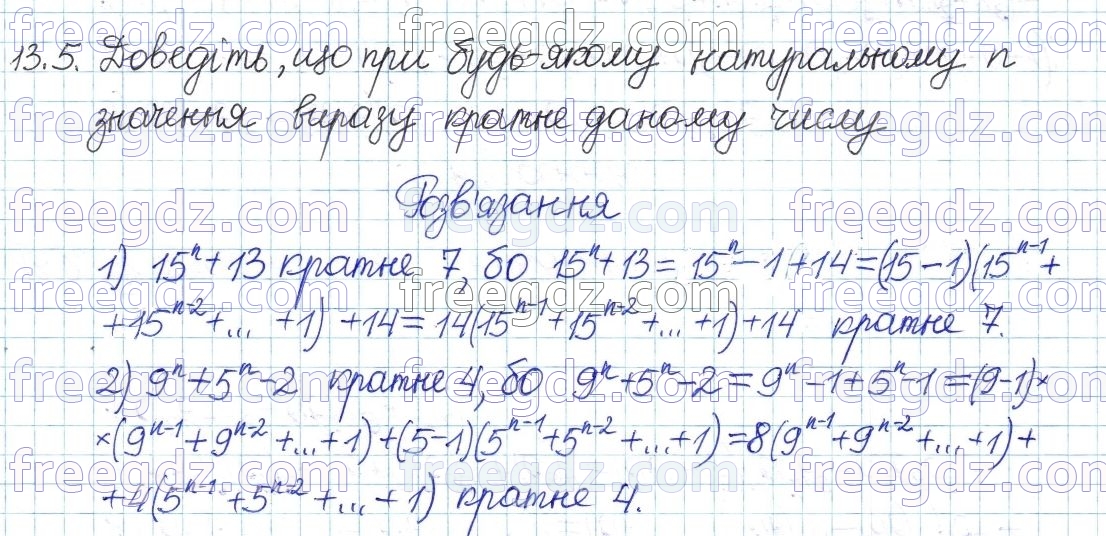 13.5. Доведіть, що при будь-якому натуральному n
значення виразу кратне даному числу
Розв'язання
1) 15ⁿ + 13 кратне 7, бо 15ⁿ + 13 = 15ⁿ - 1 + 14 = (15 - 1)(15ⁿ⁻¹ +
+ 15ⁿ⁻² + ... + 1) + 14 = 14(15ⁿ⁻¹ + 15ⁿ⁻² + ... + 1) + 14 кратне 7.
2) 9ⁿ + 5ⁿ - 2 кратне 4, бо 9ⁿ + 5ⁿ - 2 = 9ⁿ - 1 + 5ⁿ - 1 = (9 - 1) ×
× (9ⁿ⁻¹ + 9ⁿ⁻² + ... + 1) + (5 - 1)(5ⁿ⁻¹ + 5ⁿ⁻² + ... + 1) = 8(9ⁿ⁻¹ + 9ⁿ⁻² + ... + 1) +
+ 4(5ⁿ⁻¹ + 5ⁿ⁻² + ... + 1) кратне 4.